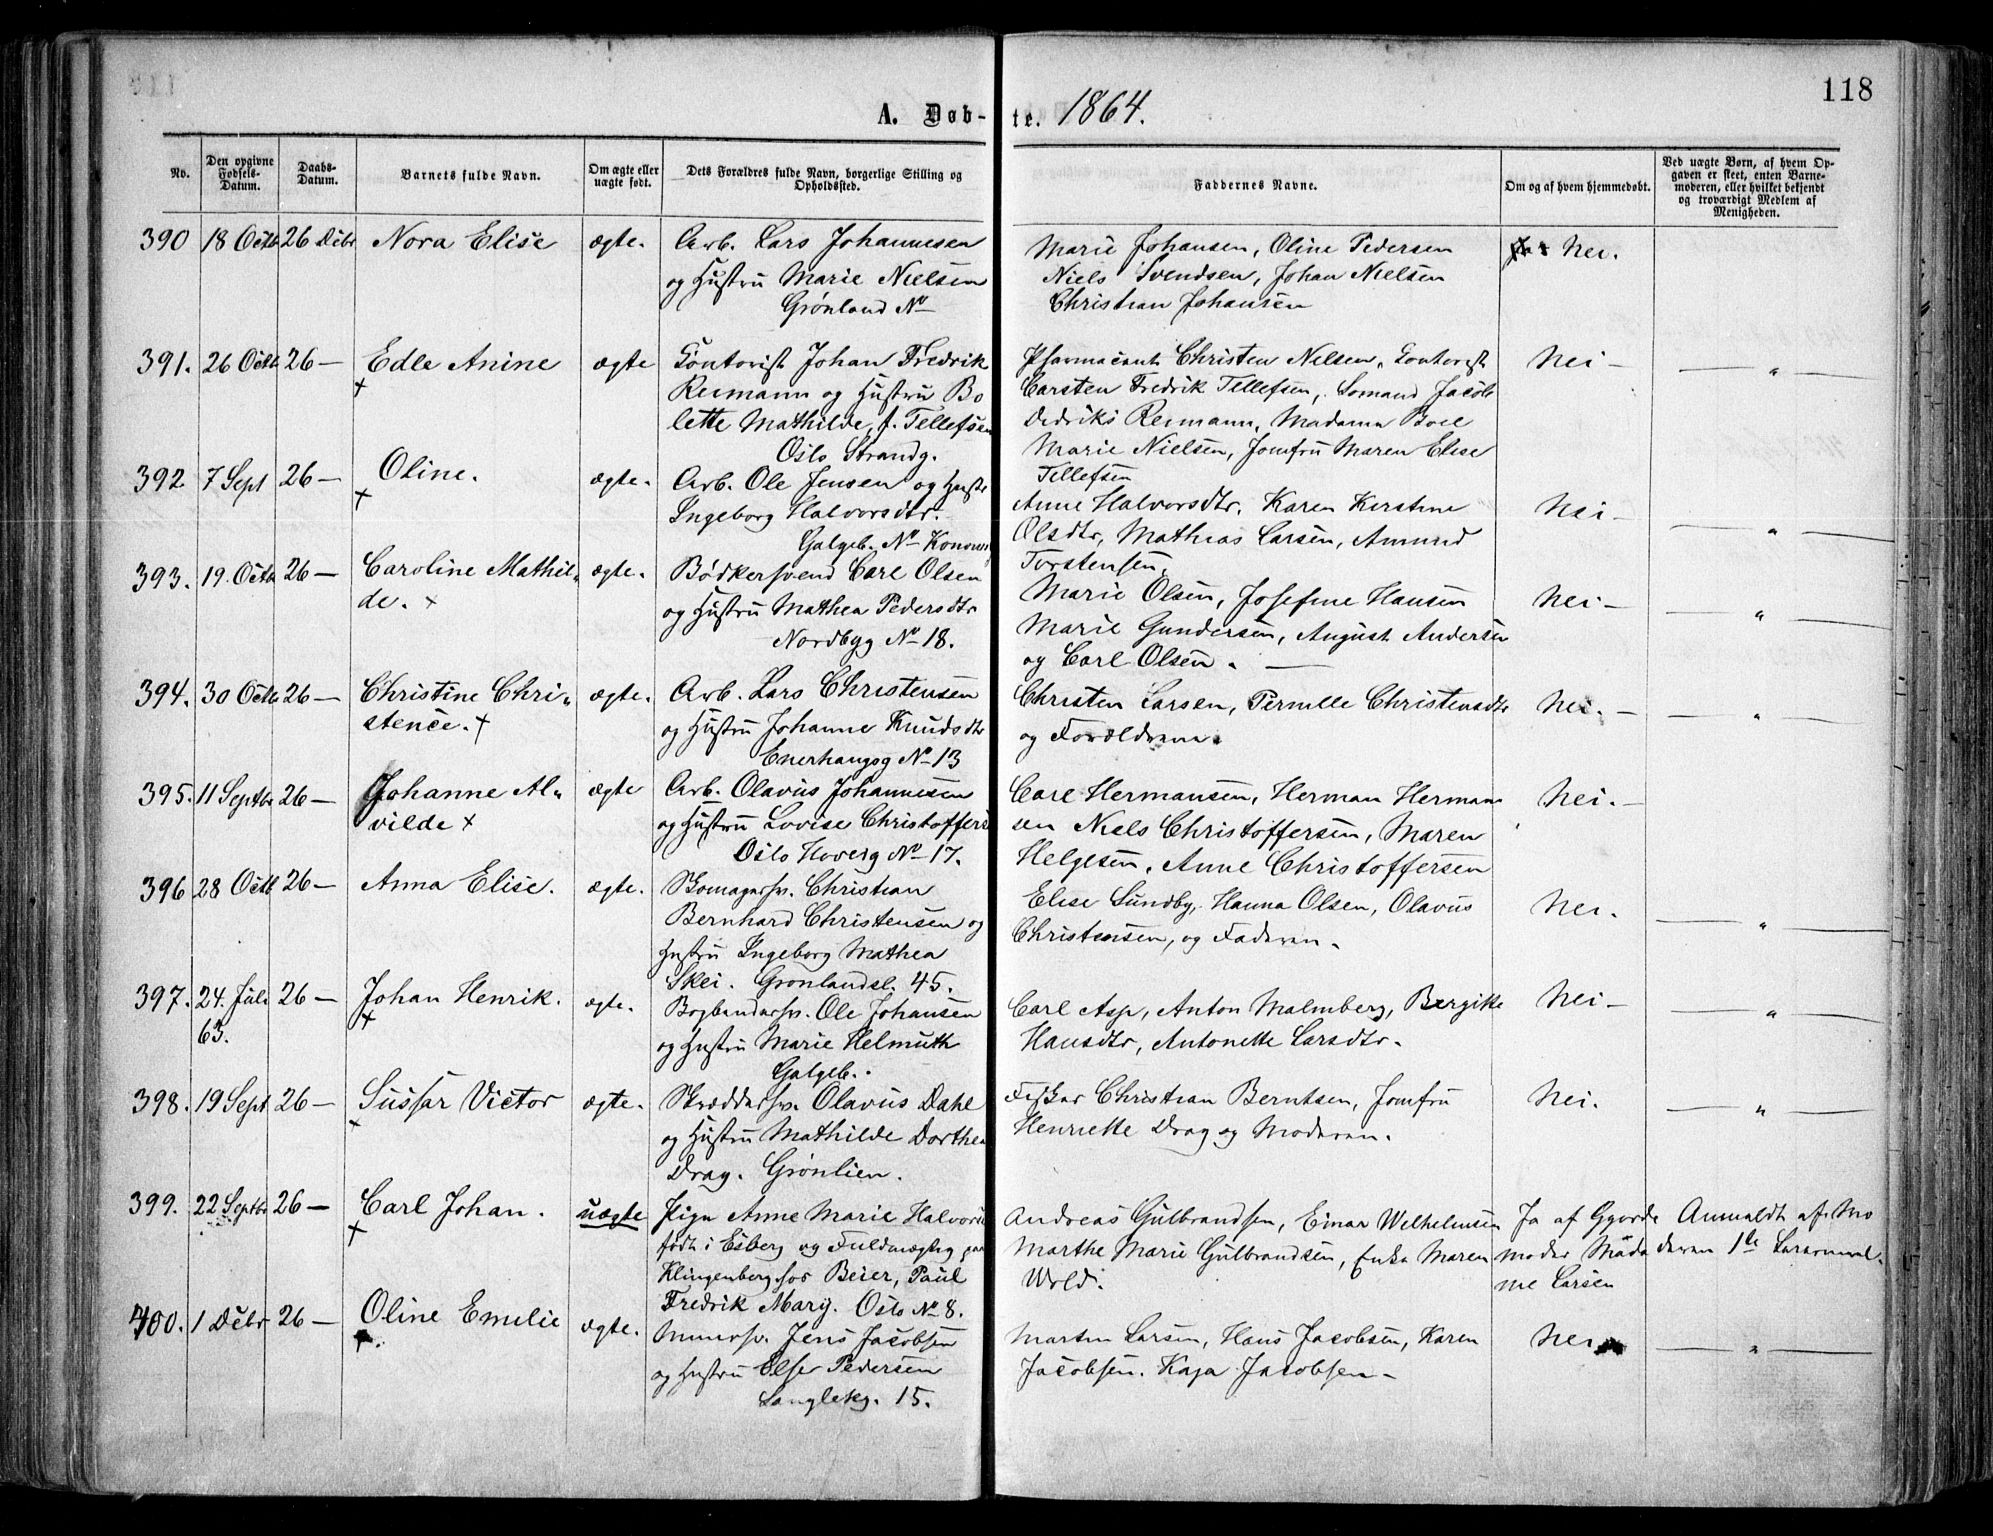 118
A. Døb-te. 1864.
No.
Den opgivne Fødsels-Datum.
Daabs-Datum.
Barnets fulde Navn.
Om ægte eller uægte født.
Dets Forældres fulde Navn, borgerlige Stilling og Opholdssted.
Faddernes Navne.
Om og af hvem hjemmedøbt.
Ved uægte Børn, af hvem Opgaven er skeet, enten Barnemoderen, eller hvilket bekjendt og troværdigt Medlem af Menigheden.
390 18 Octb 26 Debr Nora Elise ægte. Arb. Lars Johannesen
og Hustru Marie Nielsen
Grønland No
Marie Johansen, Oline Pedersen
Niels Svendsen, Johan Nielsen
Christian Johansen
Nei.
391. 26 Octb 26 — Edle Anine ægte Contorist Johan Fredrik
Reimann og Hustru Bo
lette Mathilde, f. Tellefsen
Oslo Strandg.
Pharmaceut Christen Nielsen, Contorist
Carsten Fredrik Tellefsen, Sømand Jacob
Dedriks Reimann, Madame Boel
Marie Nielsen, Jomfru Maren Elise
Tellefsen
Nei — — „ —
392 7 Sept 26 — Oline. ægte. Arb. Ole Jensen og Hustr
Ingeborg Halvorsdtr.
Galgeb. No
Anne Halvorsdtr, Karen Kirstine
Olsdtr, Mathias Larsen, Amund
Torstensen.
Nei — — „ —
393. 19. Octb 26 — Caroline Mathil„
de. ægte. Bødkersvend Carl Olsen
og Hustru Mathea Pedersdtr
Nordbyg No 18.
Marie Olsen, Josefine Hansen
Marie Gundersen, August Andersen
og Carl Olsen. —
Nei — — „ —
394. 30 Octb 26 — Christine Chri„
stence. ægte. Arb. Lars Christensen
og Hustru Johanne Knudsdtr
Enerhaugsg No 13
Christen Larsen, Pernille Christensdtr
og Forældrene.
Nei. — — „ —
395. 11 Septbr 26 — Johanne Al„
vilde ægte Arb. Olavus Johannesen
og Hustru Lovise Christoffers
Oslo Hoveig No 17.
Carl Hermansen, Herman Herman
sen Niels Christoffersen, Maren
Helgesen, Anne Christoffersen
Nei. —
396 28 Octb 26 — Anna Elise. ægte. Skomagersv. Christian
Bernhard Christensen og
Hustru Ingeborg Mathea
Skei. Grønlandsl. 45.
Elise Sundby, Hanna Olsen, Olavus
Christensen, og Faderen.
Nei. — „ —
397. 24. Juli
63. 26 — Johan Henrik. ægte. Bogbindersv. Ole Johansen
og Hustru Marie Helmuth
Galgeb.
Carl Asp, Anton Malmberg, Bergitte
Hansdtr, Antonette Larsdtr.
Nei — — „ —
398. 19 Sept 26 — Sussar Victor ægte. Skræddersv. Olavus Dahl
og Hustru Mathilde Dorthea
Drag. Grønlien.
Fisker Christian Berntsen, Jomfru
Henriette Drag og Moderen.
Nei. — „ —
399. 22 Septbr 26 — Carl Johan. uægte Pige Anne Marie Halvors
født i Esberg og Fuldmægtig paa
Klingenberg hos Beier, Paul
Fredrik Mary. Oslo No 8.
Andreas Gulbrandsen, Einar Wilhelmsen
Marthe Marie Gulbrandsen, Enke Maren
Wold.
Ja af Gjorde
moder Mada
me Larsen
Anmeldt af Mo
deren 1te
400. 1 Debr 26 — Oline Emilie ægte. Murersv. Jens Jacobsen
og Hustru Else Pedersen
Langleikg. 15.
Martin Larsen, Hans Jacobsen, Karen
Jacobsen. Kaja Jacobsen —
Nei — „ —